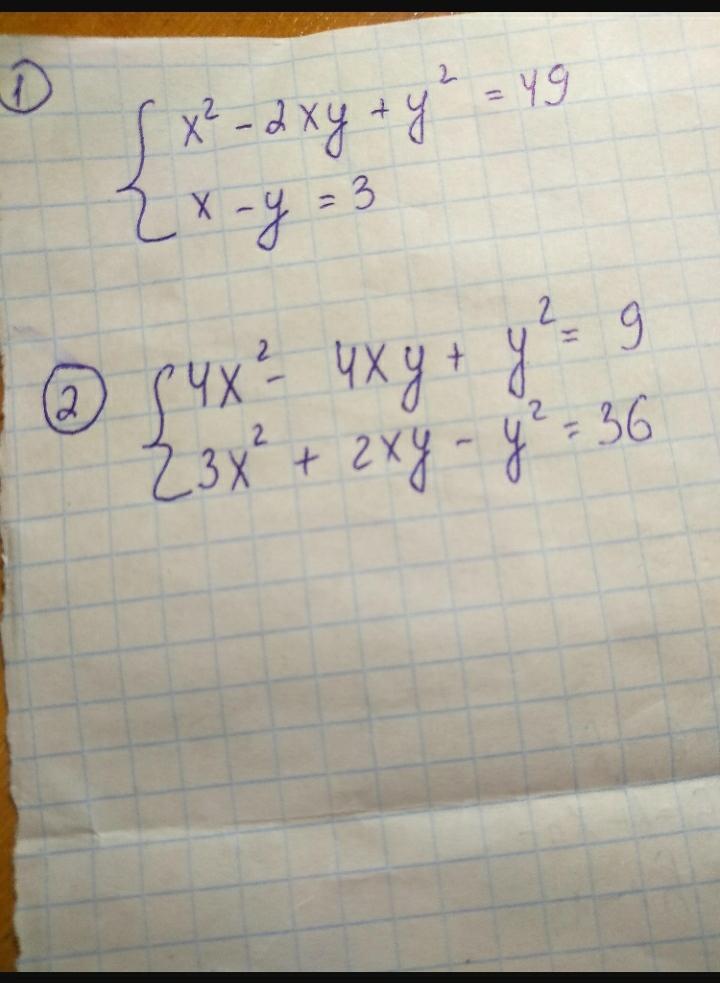 ① { x² - 2xy + y² = 49
x - y = 3
② { 4x² - 4xy + y² = 9
3x² + 2xy - y² = 36